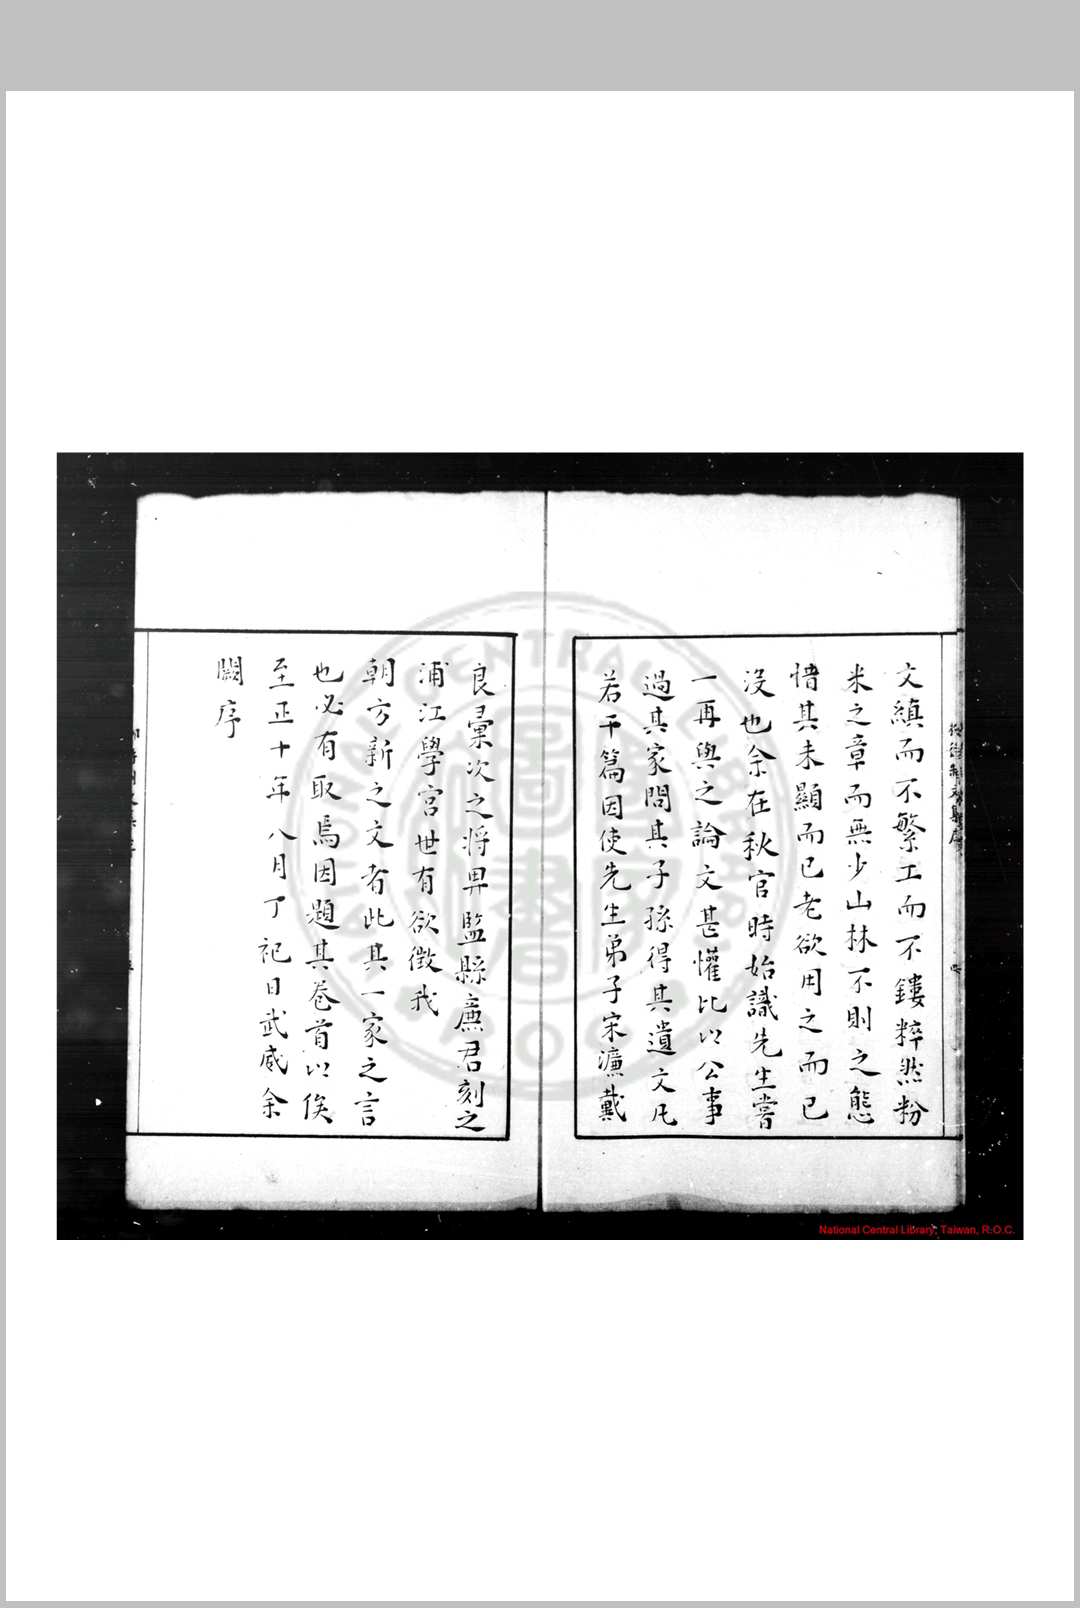 文縝而不繁工而不鏤粹然粉
米之章而無少山林不則之態
惜其未顯而已老欲用之而已
沒也余在秋官時始識先生嘗
一再與之論文甚懽比以公事
過其家問其子孫得其遺文凡
若干篇因使先生弟子宋濂戴
良彚次之將畀監縣廉君刻之
浦江學宮世有欲徵我
朝方新之文者此其一家之言
也必有取焉因題其卷首以俟
至正十年八月丁祀日武威余
闕序
National Central Library, Taiwan, R.O.C.